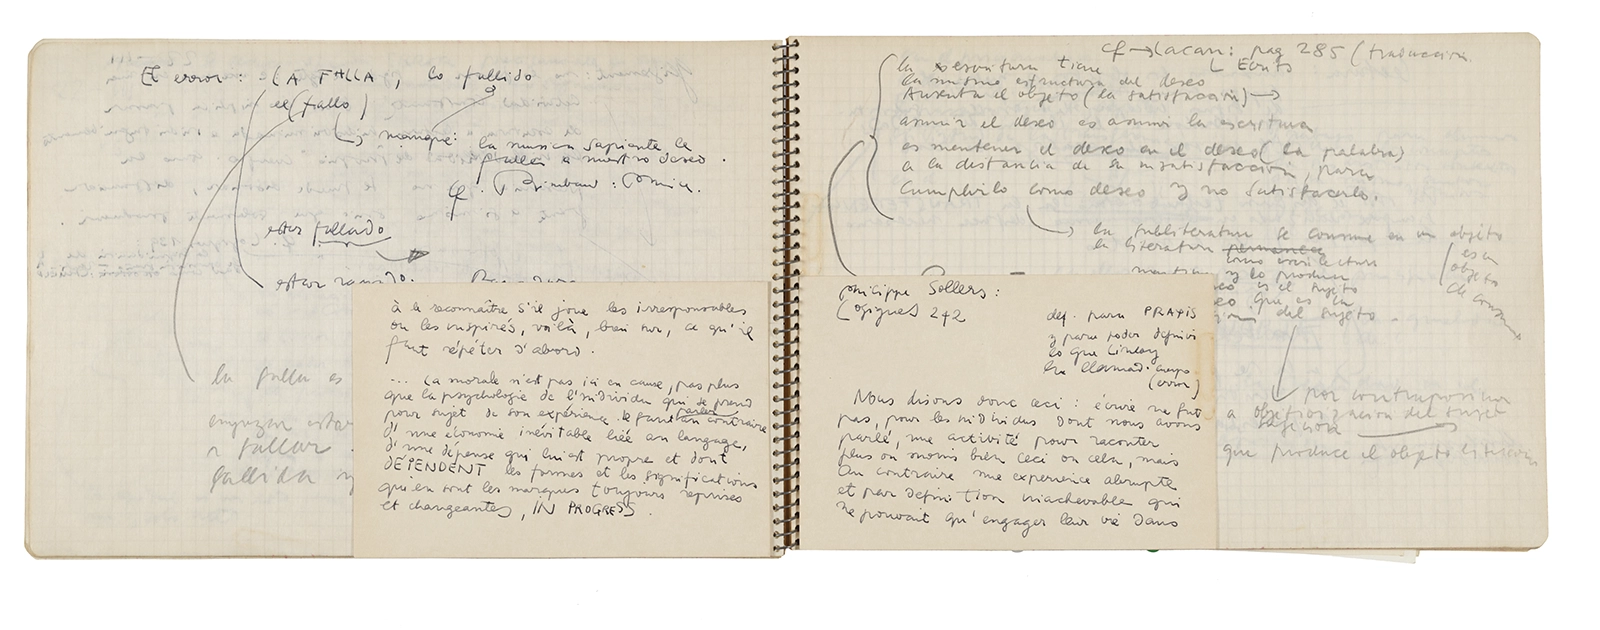 El error: LA FALLA, lo fallido
el (fallo)
manque: la música sapiente le
falla a nuestro deseo.
cf. Rimbaud:
estar fallado
la falla es
empezar
a fallar
fallida y
à le reconnaître s'il joue les irresponsables
ou les inspirés, voilà, bien sûr, ce qu'il
faut répéter d'abord.
... la morale n'est pas ici en cause, pas plus
que la psychologie de l'individu qui se prend
pour sujet de son expérience. Il faut parler au contraire
d'une économie inévitable liée au langage,
d'une dépense qui lui est propre et dont
DÉPENDENT les formes et les significations
qui en sont les marques toujours reprises
et changeantes, IN PROGRESS.
cf → Lacan: pag 285 (traducción
Ecrits
la escritura tiene
la misma estructura del deseo
Ausenta el objeto (la satisfacción) →
asumir el deseo es asumir la escritura
es mantener el deseo en el deseo (la palabra)
a la distancia de su insatisfacción, para
cumplirlo como deseo y no satisfacerlo.
la subliteratura se consume en un objeto
la literatura
es un
objeto
de consumo
y lo produce
es el sujeto
que es la
del sujeto.
por contraposición
a objetivización del sujeto
que produce el objeto literario
Philippe Sollers:
Logiques 242
def. para PRAXIS
y para poder definir
lo que
ha llamado cuerpo
(error)
Nous disons donc ceci: écrire ne fut
pas, pour les individus dont nous avons
parlé, une activité pour raconter
plus ou moins bien ceci ou cela, mais
au contraire une expérience abrupte
et par définition inachevable qui
ne pouvait qu'engager leur vie dans